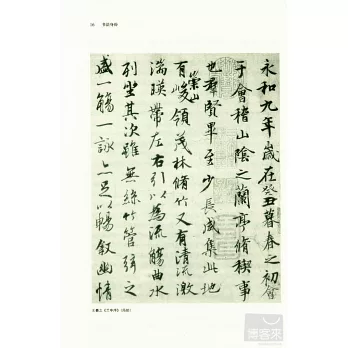 56
永和九年歲在癸丑暮春之初會
于會稽山陰之蘭亭脩稧事
也羣賢畢至少長咸集此地
有崇山峻領茂林脩竹又有清流激
湍暎帶左右引以為流觴曲水
列坐其次雖無絲竹管弦之
盛一觴一詠亦足以暢敘幽情
博客來